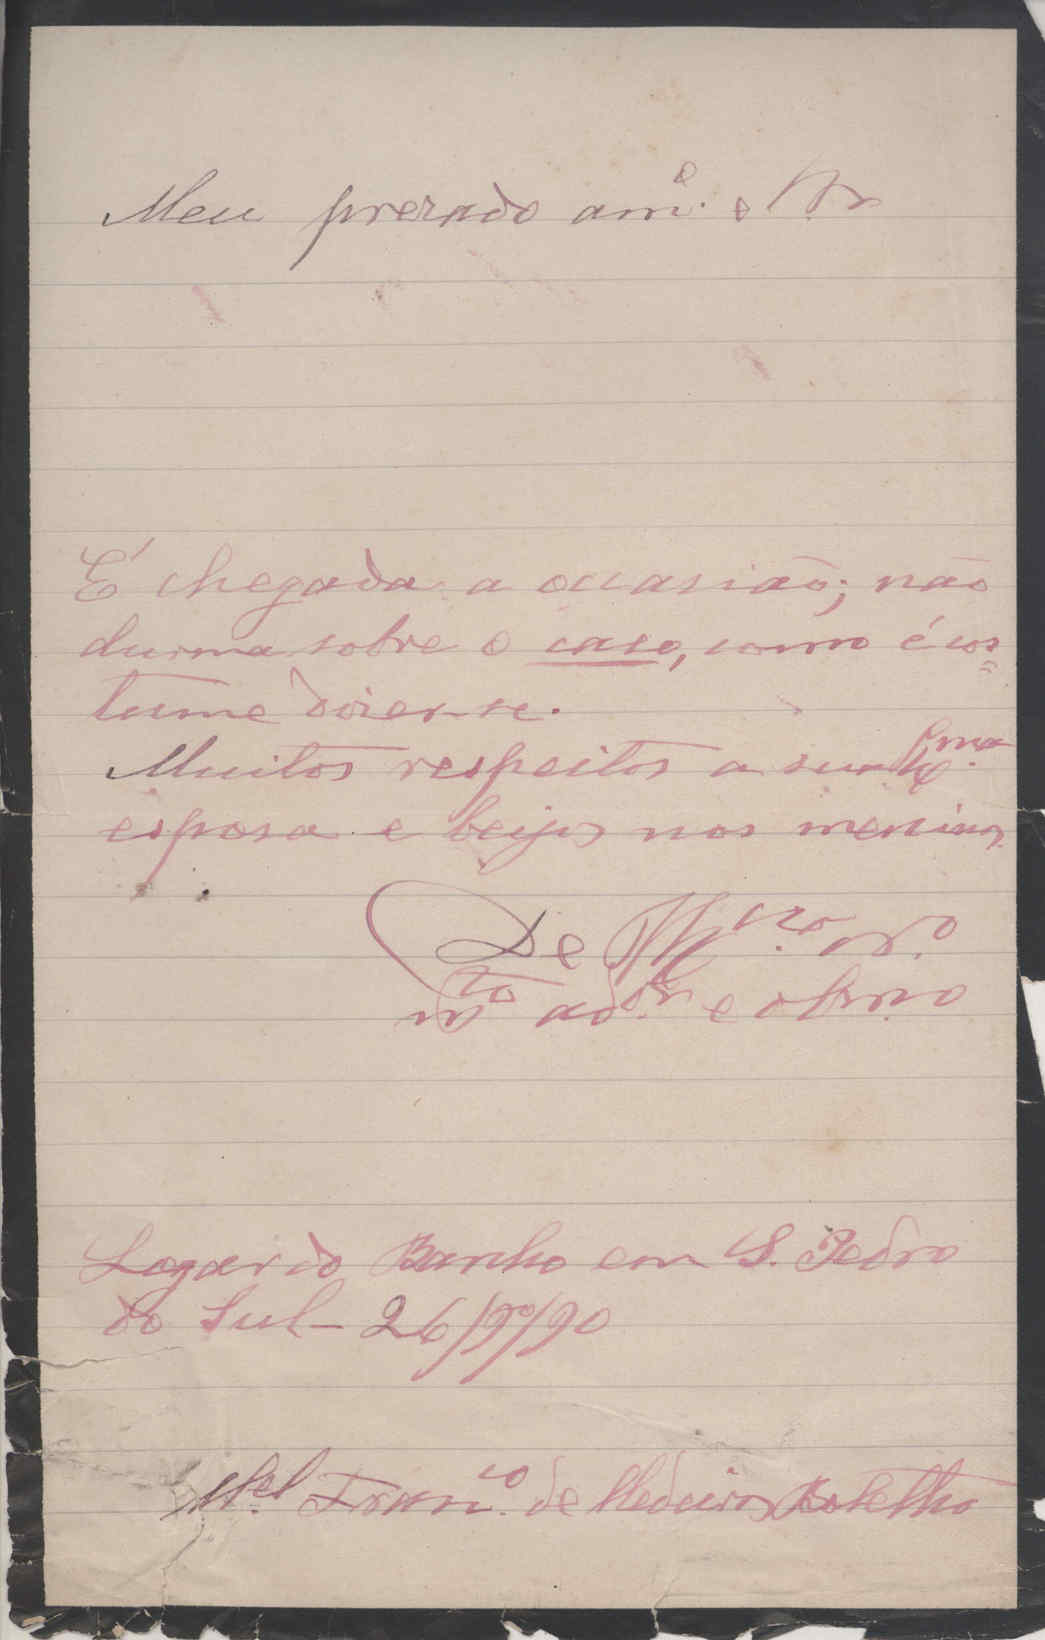 Meu prezado amº. e Sr.
É chegada a occasião; não
durma sobre o caso, como é cos=
tume dizer-se.
Muitos respeitos a sua Exma.
esposa e beijos nos meninos
De
mto ador. e obrno
Logar do Banho em S. Pedro
do Sul - 26/9º/90
Mel. Franco. de Medeiros Botelho